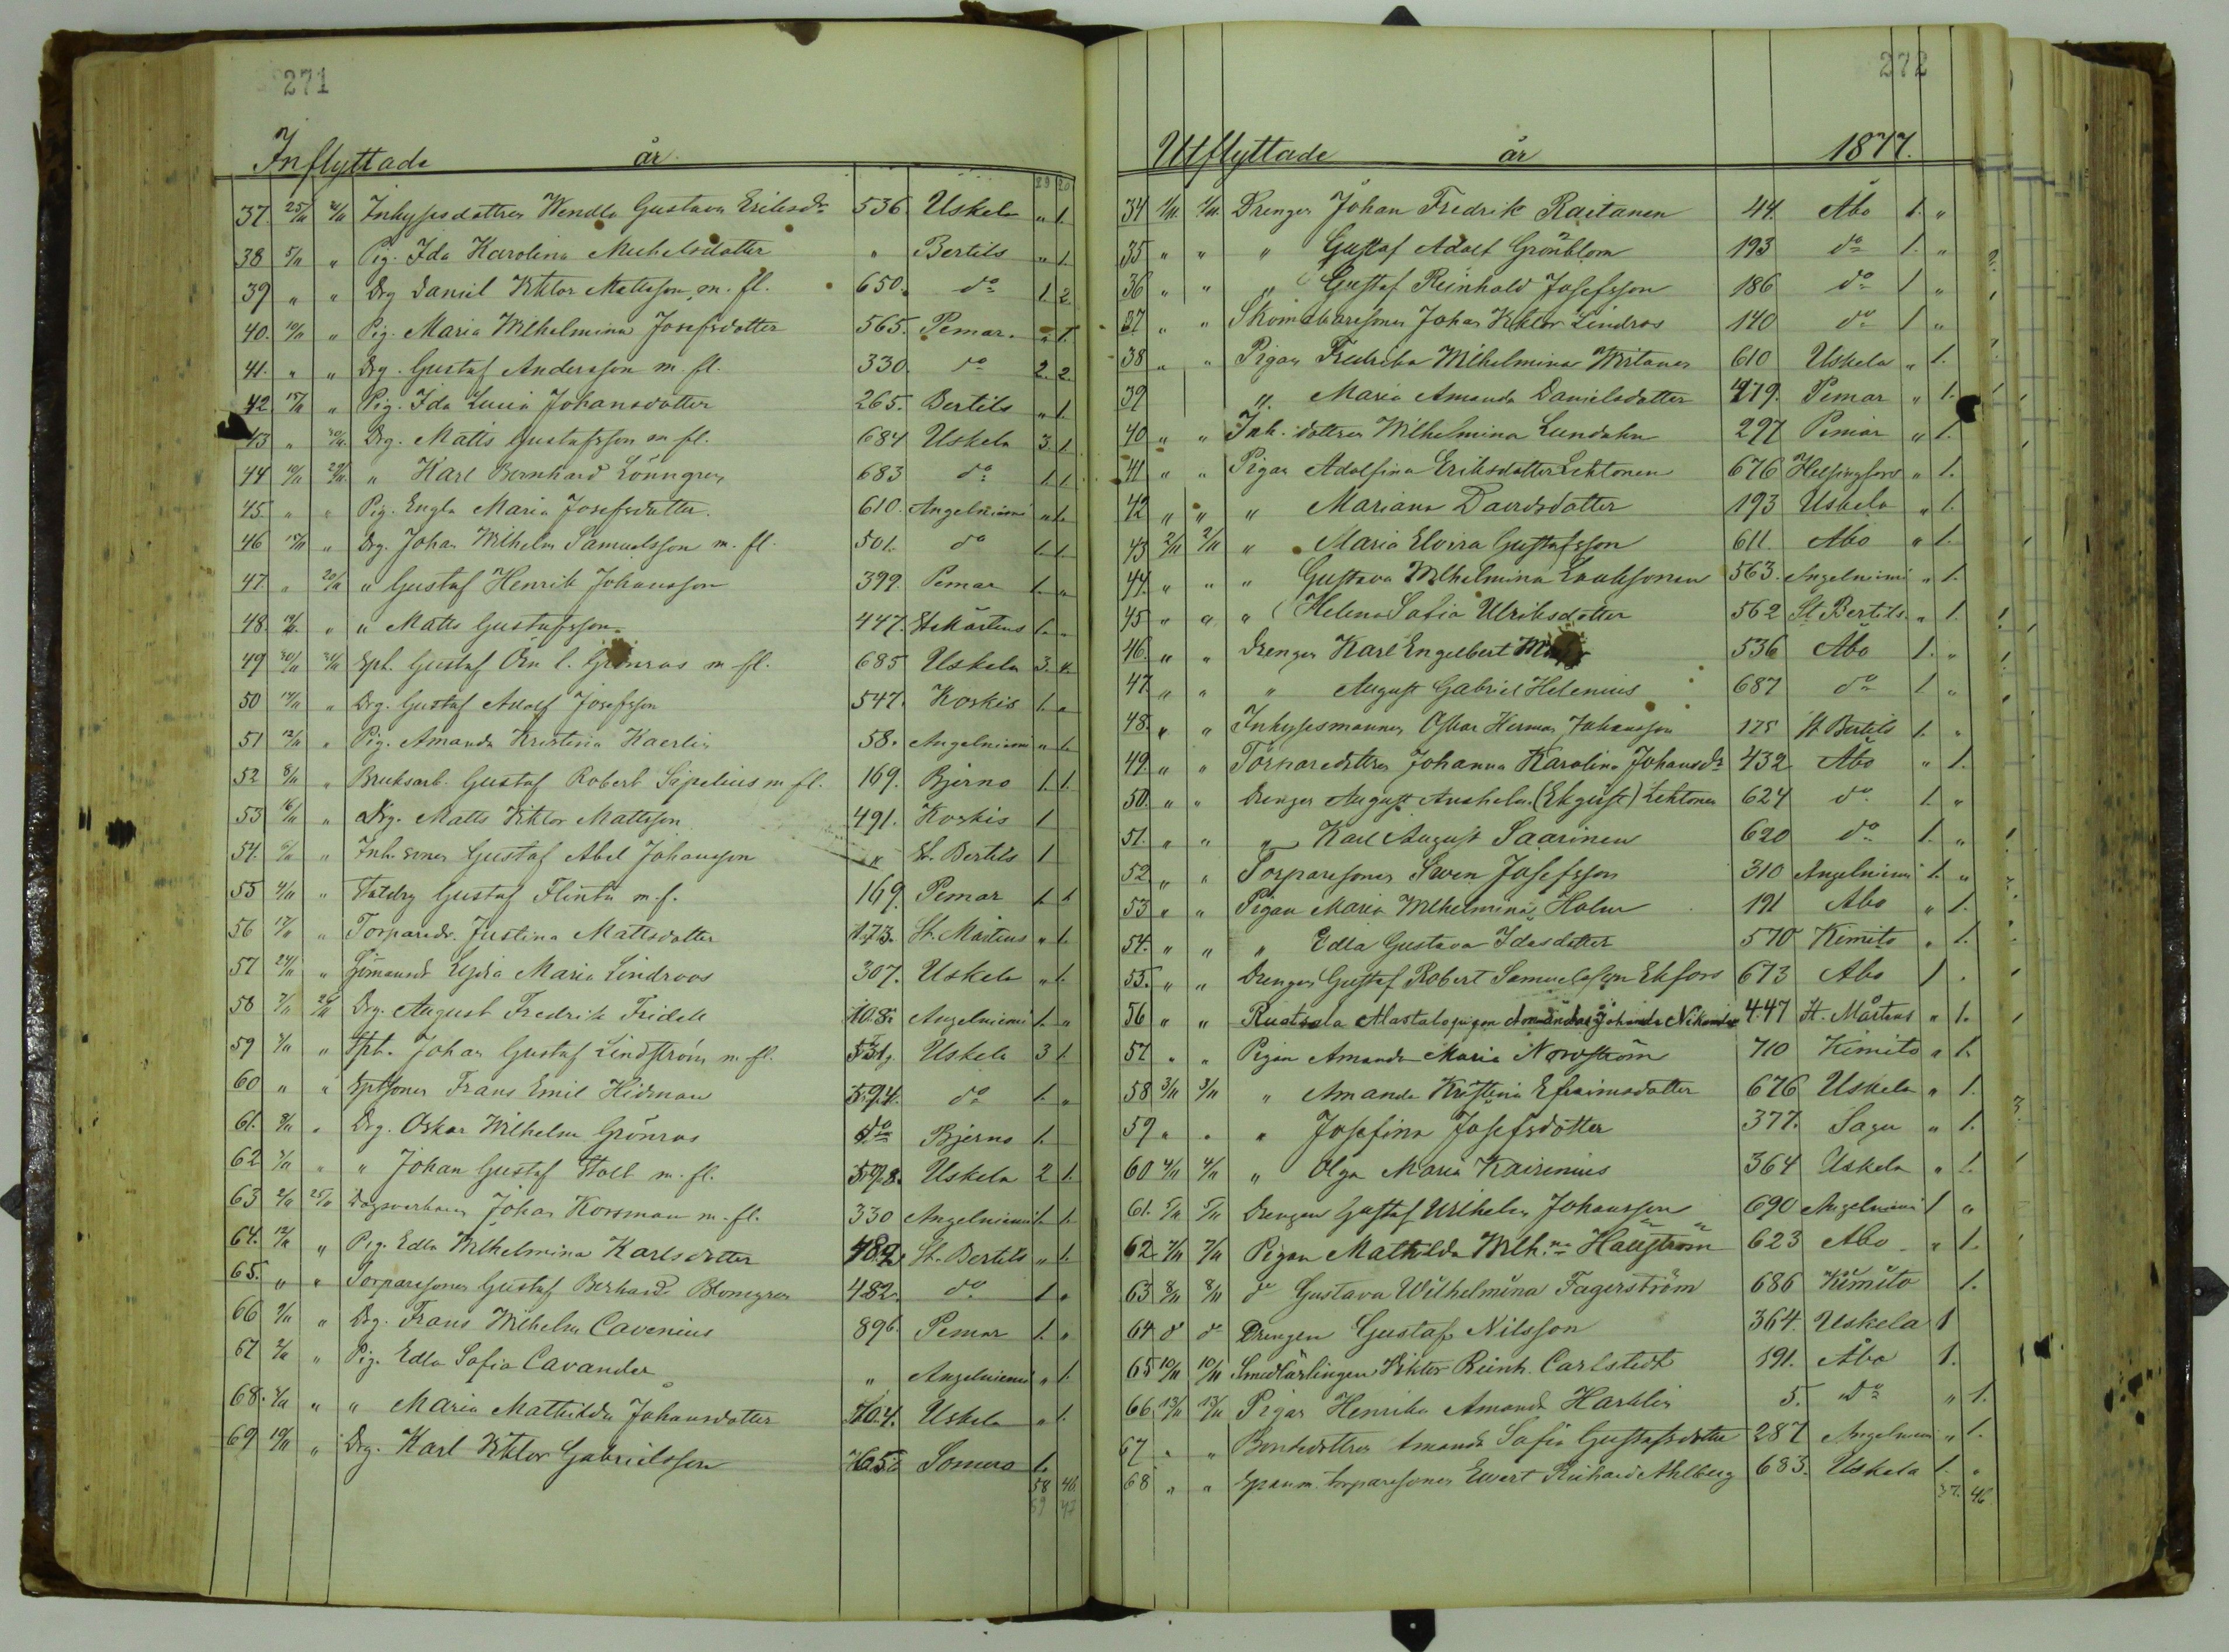 271
Inflyttade år
29 20
37. 25/11 Inhyses dottren Wendla Gustava Eriksdr 536 Uskela " 1.
38 5/11 " Pig. Ida Karolina Michelsdotter " Bertils " 1.
39 " " Drg Daniel Viktor Mattsson m. fl. 650. do 1 2
40. 10/11 " Pig. Maria Wilhelmina Josefsdotter 565. Pemar. " 1.
41. " " Drg. Gustaf Andersson m. fl. 330. do 2. 2.
42 15/11 " Pig. Ida Lucia Johansdotter 265. Bertils " 1.
43 " 20/11 Drg. Matts Gustafsson m fl. 684 Uskela 3 1.
44 " Karl Bernhard Lönngren 683 do 1 1
45 " " Pig. Engla Maria Josefsdotter. 610. Angelniemi " 1.
46 15/11 " Drg. Johan Wilhelm Samuelsson m. fl. 501. do 1. 1.
47. " 20/11 " Gustaf Henrik Johansson 399. Pemar 1. "
48. " " Matts Gustafsson 447. St Mårtens 1. "
49 Spt. Gustaf Grönroos m fl. 685 Uskela 3.
50 " Drg. Gustaf Adolf Josefsson 547. Koskis 1. "
51 12/11 " Pig. Amanda Kristina Kaerlin 58. Angelniemi " 1.
52 8/11 " Bruksarb. Gustaf Robert Sipelius m fl. 169. Bjerno 1. 1.
53 16/11 " Drg. Matts Viktor Mattsson 491. Koskis 1
54. " Inh. sonen Gustaf Abel Johansson " St. Bertils 1
55 " Statdrg Gustaf Flinta m. f. 169. Pemar 1. 1
56 " Torparedr. Justina Mattsdotter 173. St. Mårtens " 1.
57 24/11 " Lydia Maria Lindroos 307. Uskela " 1.
58 Drg. August Fredrik Fridell 108. Angelniemi 1. "
59 " Spt. Johan Gustaf Lindström m. fl. 531. Uskela 3 1.
60 " " Sptsonen Frans Emil Hidman 594. do 1. "
61. " Drg. Oskar Wilhelm Grönroos do Bjerno 1.
62 " " Johan Gustaf Stolt m. fl. 598. Uskela 2 1.
63 Dagsverkaren Johan Korsman m. fl. 330 Angelniemi 1. 1.
64. 12/11 " Pig. Edla Wilhelmina Karlsdotter 482. St. Bertils " 1.
65. " " Torparesonen Gustaf Berhard Blomgren 482. do 1 "
66 " Drg. Frans Wilhelm Cavenius 896. Pemar 1. "
67 " Pig. Edla Sofia Cavander " Angelniemi " 1.
68. " " Maria Mathilda Johansdotter 104. Uskela " 1.
69 " Drg. Karl Viktor Gabrielsson 165. Somero 1.
58 46.
59 47
272
Utflyttade år 1877.
34 1/11 1/11 Drengen Johan Fredrik Raitanen 44. Åbo 1. "
35 " " " Gustaf Adolf Grönblom 193 do 1. "
36 " " " Gustaf Reinhold Josefsson 186 do 1 "
37 " " Skomakaresonen Johan Viktor Lindros 140 do 1 "
38 " " Pigan Fredrika Wilhelmina Wirtanen 610 Uskela " 1.
39 " Maria Amanda Danielsdotter 479. Pemar " 1.
40 " " Inh. dottren Wilhelmina Lundahn 297 Pemar " 1.
41 " " Pigan Adolfina Eriksdotter Lehtonen 676 Helsingfors " 1.
42 " " " Mariana Davidsdotter 193 Uskela " 1.
43 2/11 2/11 " Maria Elvira Gustafsson 611. Åbo " 1.
44. " " " Gustava Wilhelmina Laaksonen 563. Angelniemi " 1.
45 " " " Helena Sofia Ulriksdotter 562 St Bertils. " 1.
46. " " Drengen Karl Engelbert 536 Åbo 1. "
47 " " " August Gabriel Helenius 687 do 1 "
48. " " Inhysesmannen Oskar Herman Johansson 175 St Bertils 1. "
49. " " Torparedottren Johanna Karolina Johansdr 432 Åbo " 1.
50. " " Drengen August Anshelm (Ekqvist) Lehtonen 624 do 1. "
51. " " " Karl August Saarinen 620 do 1. "
52 " " Torparesonen Swen Josefsson 310 Angelniemi 1. "
53 " " Pigan Maria Wilhelmina Holm 191 Åbo " 1.
54. " " " Edla Gustava Idasdotter 570 Kimito " 1.
55. " " Drengen Gustaf Robert Samuelsson Ekfors 673 Åbo 1 "
56 " " Ruatsala Mastalo pigan Amanda Johanna Nikander 447 St. Mårtens " 1.
57 " " Pigan Amanda Maria Nordström 710 Kimito " 1.
58 3/11 3/11 " Amanda Kristina Efraimsdotter 676 Uskela " 1.
59 " " " Josefina Josefsdotter 377. Sagu " 1.
60 4/11 4/11 " Olga Maria Kairenius 364 Uskela " 1.
61. 5/11 5/11 Drengen Gustaf Wilhelm Johansson 690 Angelniemi 1 "
62. 7/11 7/11 Pigan Mathilda Wilh:na Hallström 623 Åbo " 1.
63 8/11 8/11 do Gustava Wilhelmina Fagerström 686 Kimito 1.
64 do do Drengen Gustaf Nilsson 364. Uskela 1
65 10/11 10/11 Smedlärlingen Viktor Reinh. Carlstedt 591. Åbo 1.
66 13/11 13/11 Pigan Henrika Amanda Harklin 5. do " 1.
67 " " Bondedottren Amanda Sofia Gustafsdotter 287 Angelniemi " 1.
68 " " torparesonen Ewert Richard Ahlberg 683. Uskela 1. "
37. 46.